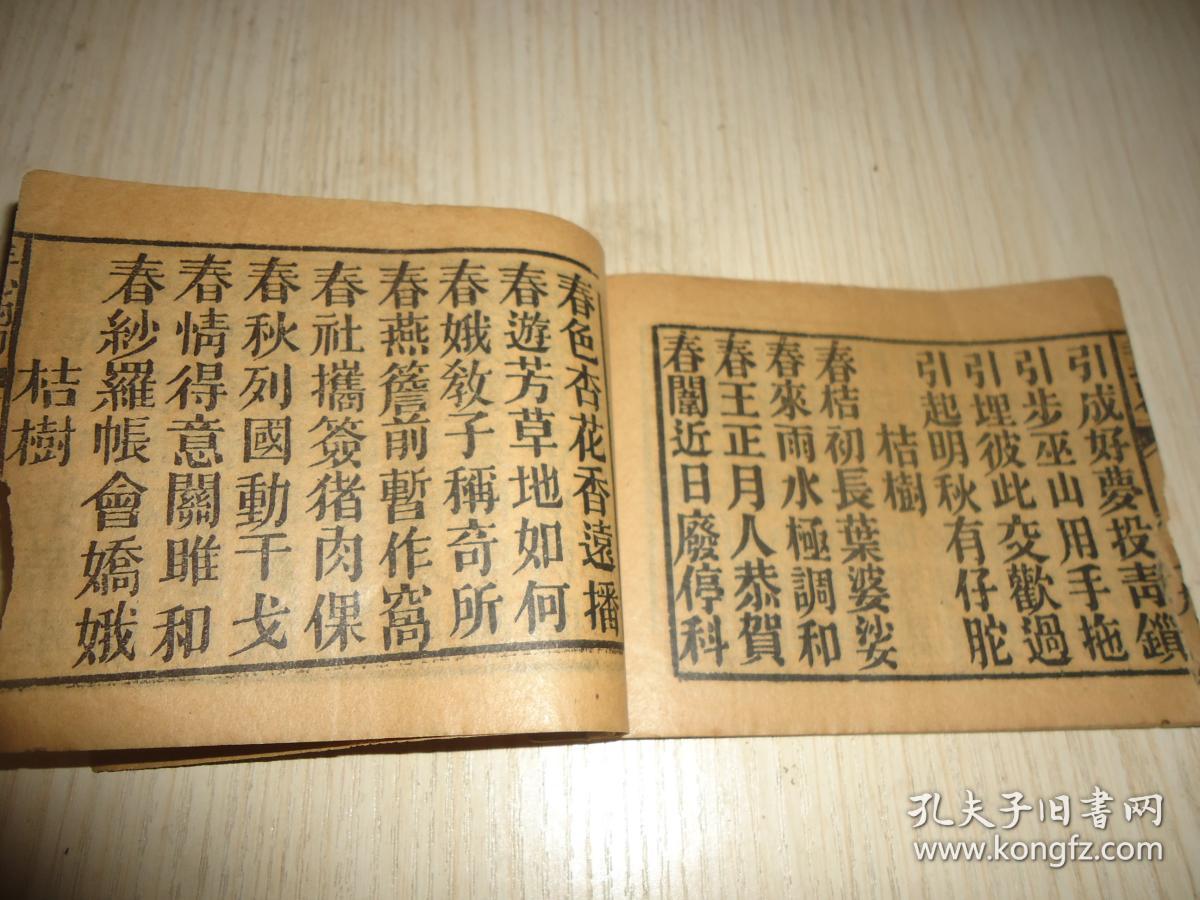 引成好夢投青鎖
引步巫山用手拖
引埋彼此交歡過
引起明秋有仔胣
桔樹
春桔初長葉婆娑
春來雨水極調和
春王正月人恭賀
春闈近日廢停科
春色杏花香遠播
春遊芳草地如何
春娥教子稱奇所
春燕簷前暫作窩
春社攜簽猪肉倮
春秋列國動干戈
春情得意關雎和
春紗羅帳會嬌娥
桔樹
孔夫子旧书网
www.kongfz.com